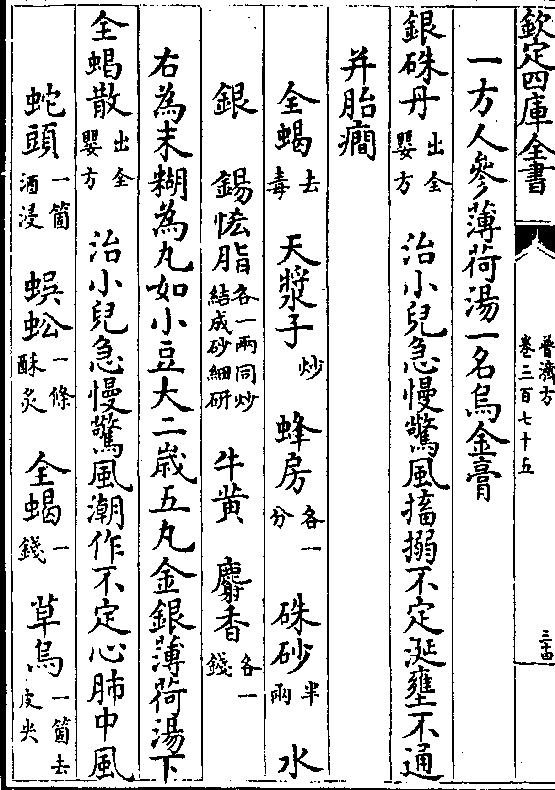 欽定四庫全書
普濟方
卷三百七十五
三十四
一方人參薄荷湯一名烏金膏
銀硃丹出全嬰方 治小兒急慢驚風搐搦不定涎壅不通
并胎癎
全蝎去毒 天漿子炒 蜂房各一分 硃砂半兩 水
銀 錫怯脂各一兩同炒結成砂細研 牛黄 麝香各一錢
右為末糊為丸如小豆大二歲五丸金銀薄荷湯下
全蝎散出全嬰方 治小兒急慢驚風潮作不定心肺中風
蛇頭一箇酒浸 蜈蚣一條酥炙 全蝎一錢 草烏一箇去皮尖